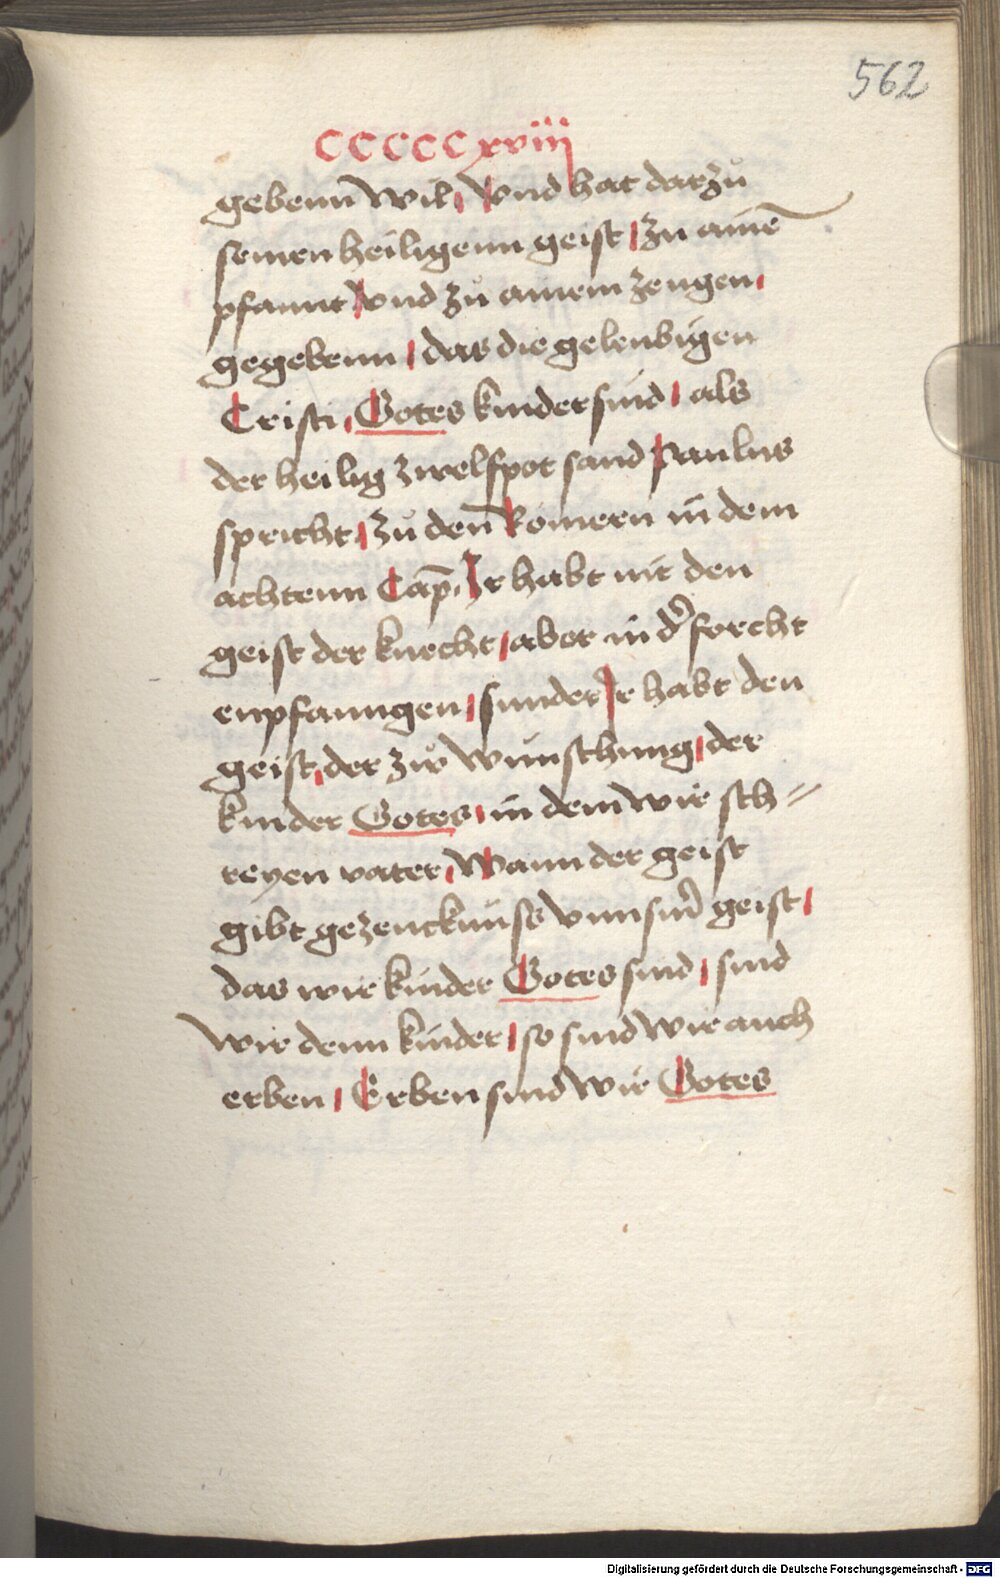 562
CCCCCxviii
gebenn wil, Vnd hat darzů
seinen heiligenn geist / zu aine᷄
pfannt Vnd zů ainem zeugen,
gegebenn / das die geleubigen
Cristi, Gotes kinder sind / als
der heilig zwelfpot sand Paulus
spricht / zů den̄ Romern in dem
achtenn Cap̄. Ir habt nit den
geist der knecht / aber in d᷑ forcht
enpfanngen / sunder Ir habt den
geist, der zůͦ wunschung / der
kinder Gotes, in dem wir sch=
reyen vater, Wann der geist
gibt gezeucknuss vnnsm̄ geist /
das wir kinder Gotes sind / sind
wir denn kinder / so sind wir auch
erben / Erben sind wir Gotes
Digitalisierung gefördert durch die Deutsche Forschungsgemeinschaft - DFG